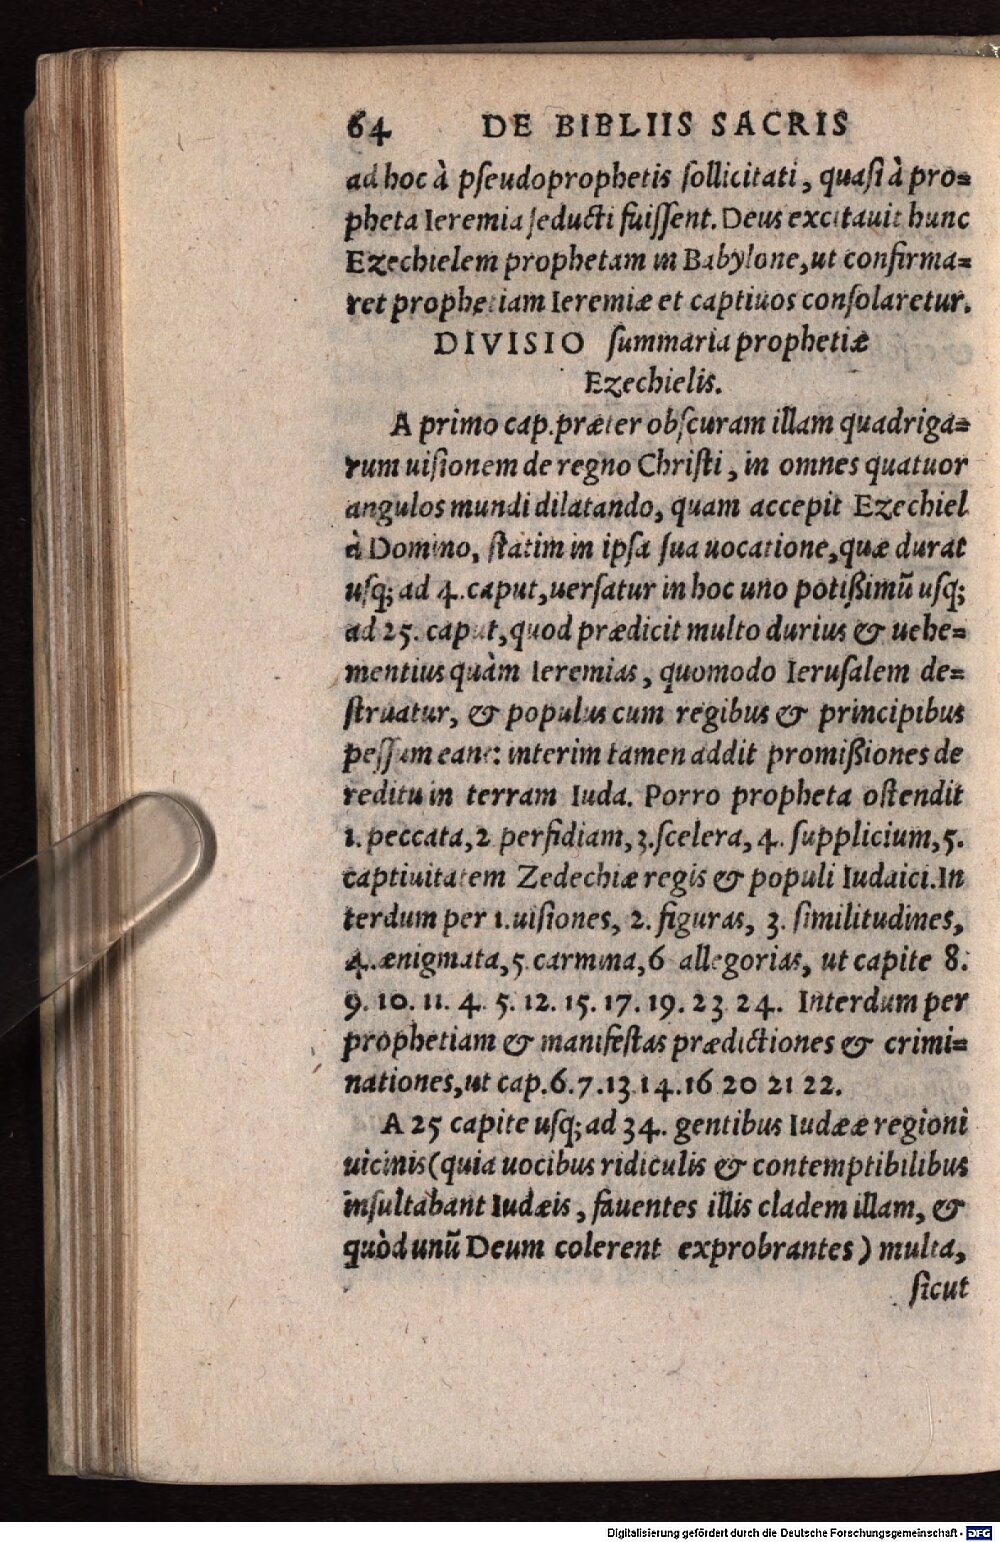 64 DE BIBLIIS SACRIS
ad hoc à pſeudoprophetis ſollicitati, quaſi à pro=
pheta Ieremia ſeducti fuiſſent. Deus excitauit hunc
Ezechielem prophetam in Babylone, ut confirma=
ret prophetiam Ieremiæ et captiuos conſolaretur.
DIVISIO ſummaria prophetiæ
Ezechielis.
A primo cap. præter obſcuram illam quadriga=
rum uiſionem de regno Chriſti, in omnes quatuor
angulos mundi dilatando, quam accepit Ezechiel
à Domino, ſtatim in ipſa ſua uocatione, quæ durat
uſq; ad 4. caput, uerſatur in hoc uno potißimũ uſq;
ad 25. caput, quod prædicit multo durius & uehe=
mentius quàm Ieremias, quomodo Ieruſalem de=
ſtruatur, & populus cum regibus & principibus
peſſum eant: interim tamen addit promißiones de
reditu in terram Iuda. Porro propheta oſtendit
1. peccata, 2 perfidiam, 3. ſcelera, 4. ſupplicium, 5.
captiuitatem Zedechiæ regis & populi Iudaici. In
terdum per 1. uiſiones, 2. figuras, 3. ſimilitudines,
4. ænigmata, 5. carmina, 6 allegorias, ut capite 8.
9. 10. 11. 4. 5. 12. 15. 17. 19. 23 24. Interdum per
prophetiam & manifeſtas prædictiones & crimi=
nationes, ut cap. 6. 7. 13 14. 16 20 21 22.
A 25 capite uſq; ad 34. gentibus Iudææ regioni
uicinis (quia uocibus ridiculis & contemptibilibus
inſultabant Iudæis, fauentes illis cladem illam, &
quòd unũ Deum colerent exprobrantes) multa,
ſicut
Digitalisierung gefördert durch die Deutsche Forschungsgemeinschaft - DFG